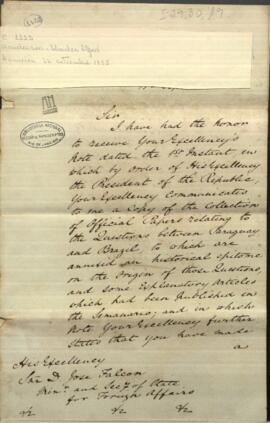 Sir
I have had the honor
to receive Your Excellency's
Note dated the Instant in
which by order of His Excellency
the President of the Republic,
Your Excellency Communicates
to me a Copy of the Collection
of Official Papers relating to
the Questions between Paraguay
and Brazil, to which are
annexed an historical epitome
on the Origin of those Questions,
and some Explanatory Articles
which had been published in
the Semanario; and in which
Note Your Excellency further
States that you have made
a
His Excellency
Sor Dn Jose Falcon
Minr and Secy of State
for Foreign Affairs